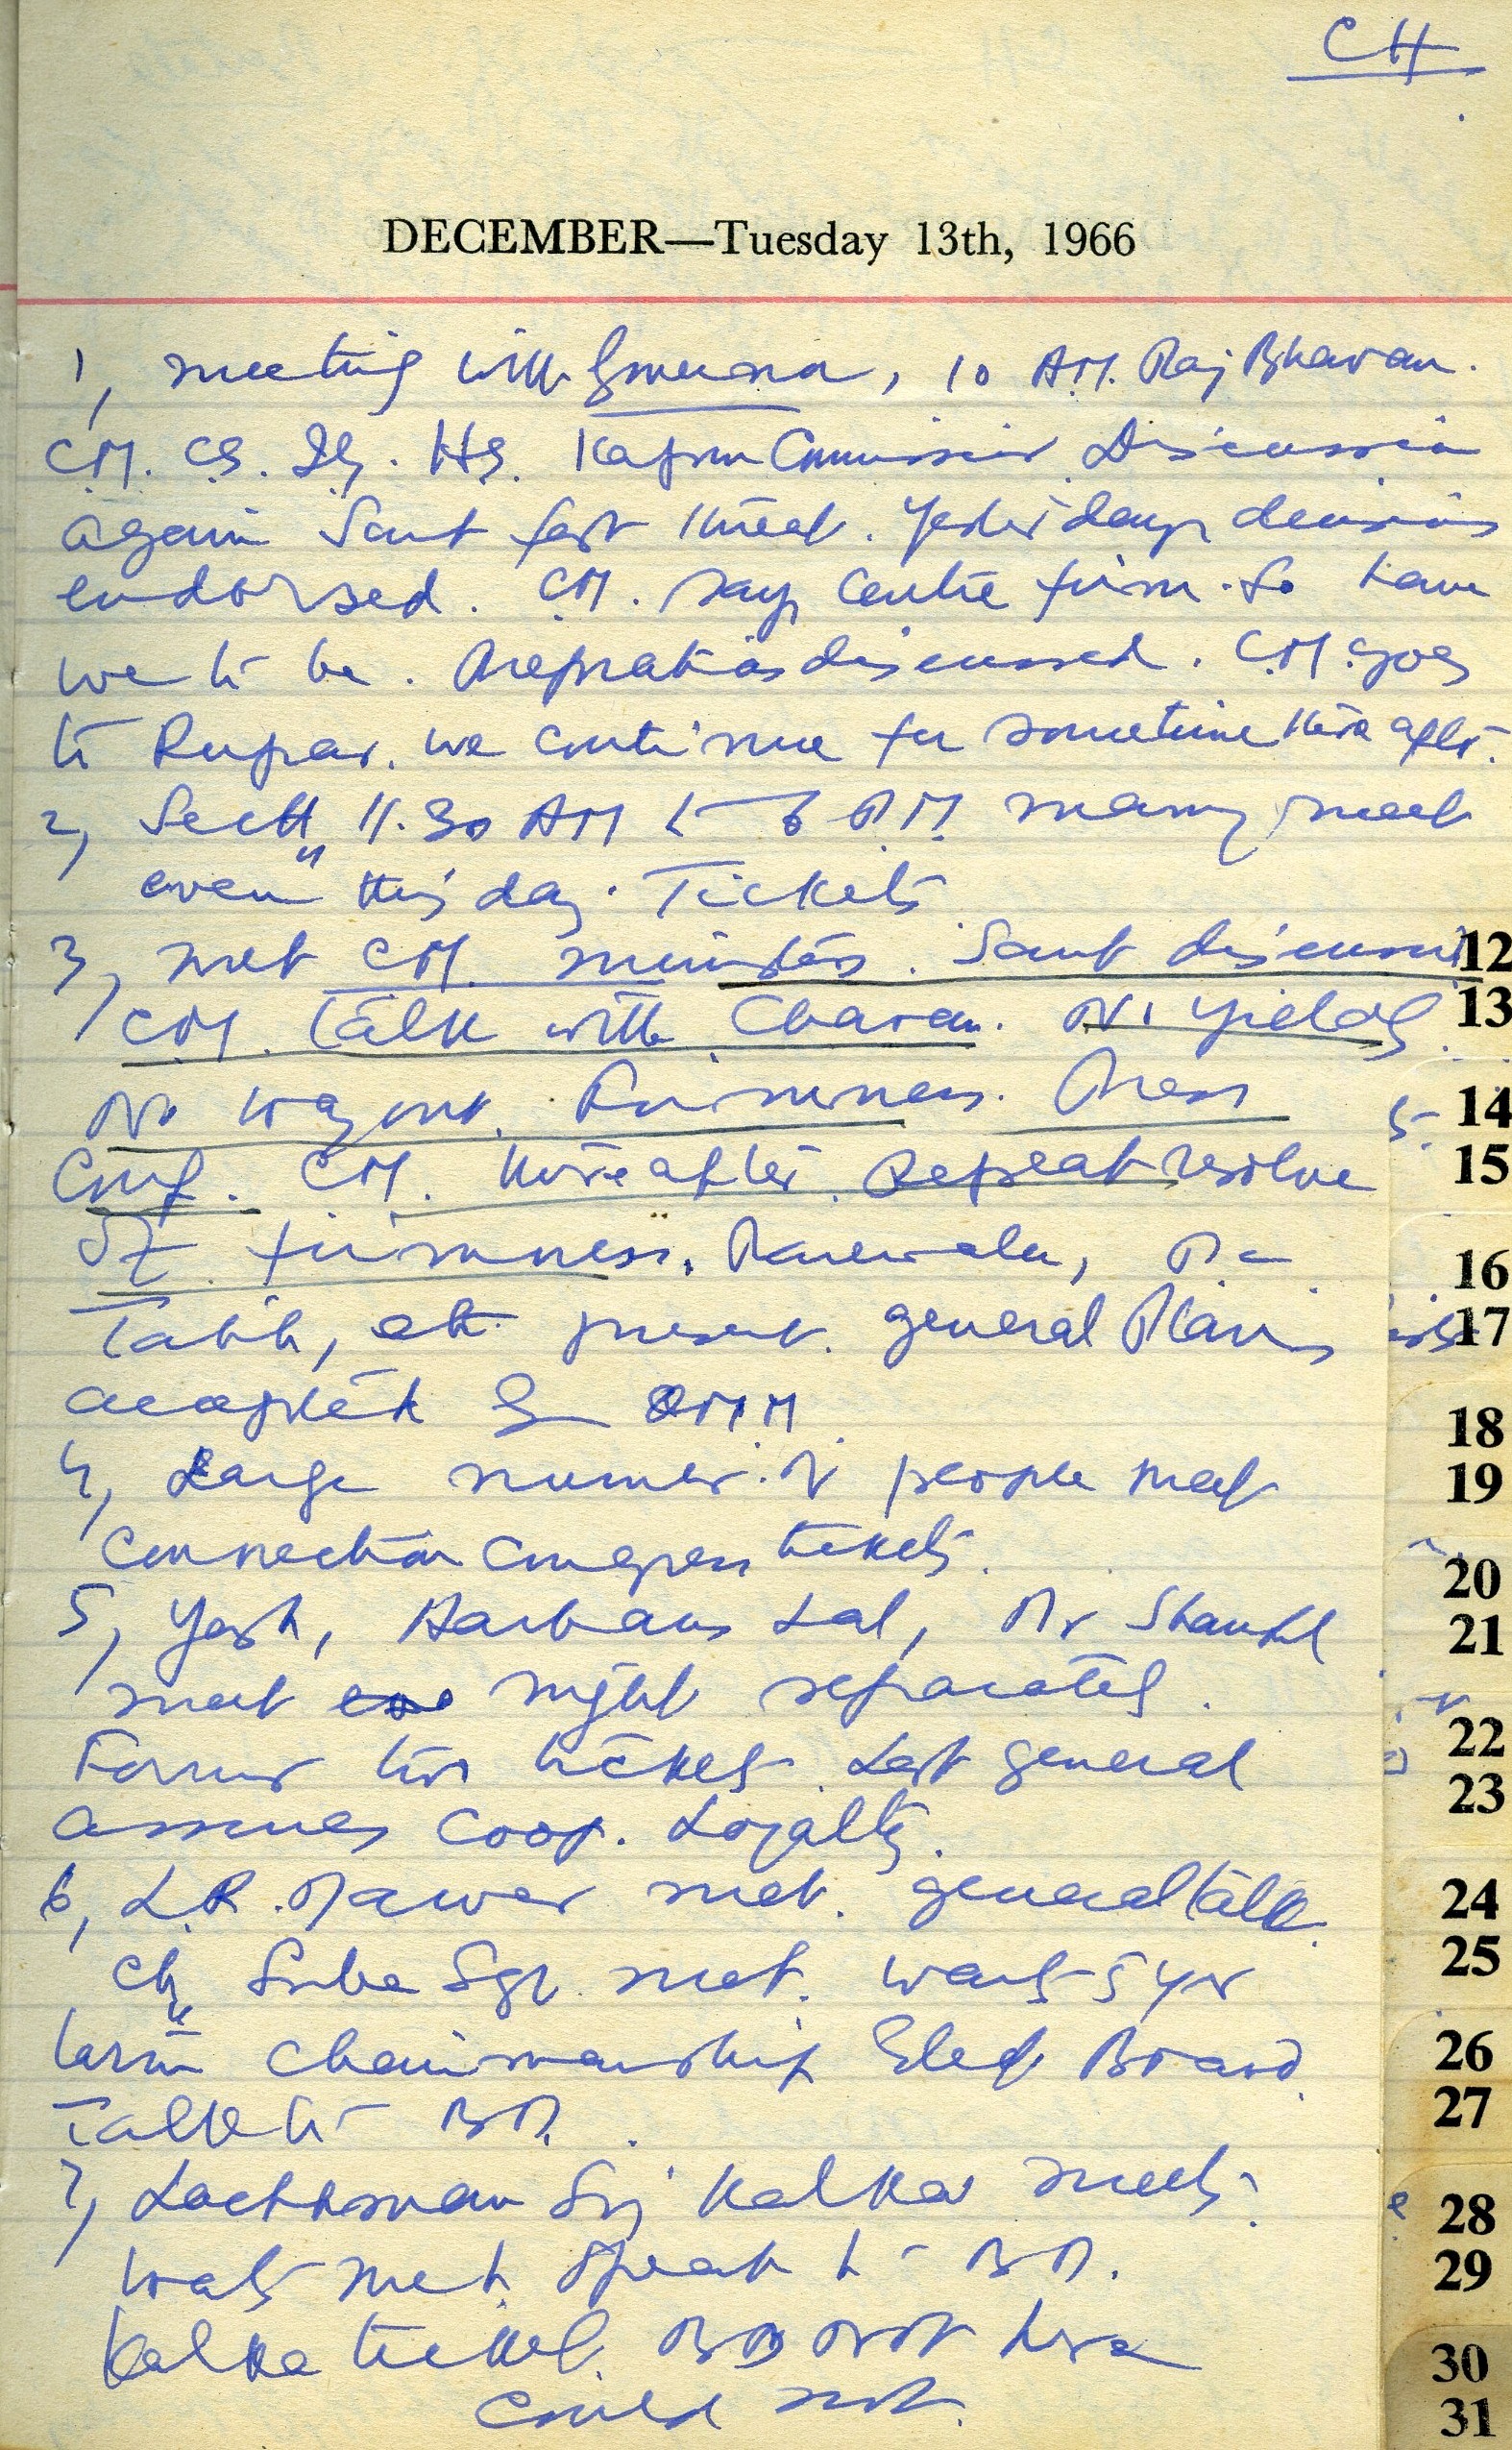 CH
DECEMBER—Tuesday 13th, 1966
1, meeting with Governor, 10 AM. Raj Bhavan.
CM. CS. IG. HS. Kapur Commissioner Discussion
again Sant fast threat. Yesterdays decisions
endorsed. CM. says Centre firm. So have
we to be. Preprations discussed. CM goes
to Rupar. we continue for sometime there after.
2, Sectt 11.30 AM to 6 PM many meet
even this day. Tickets
3, met CM ministers. Sant discussion
CM. talk with Chavan. No yielding
No way out. Firmness. Press
Conf. CM. thereafter. Repeat resolve
of firmness. Rarewala,
etc. present. general Plans
accepted
4, Large numer of people meet
connection Congress tickets.
5, Yash, Harbans Lal,
meet night separately.
Former two tickets. Last general
assures coop. Loyalty.
6, L.R. Dawar met. general talk.
Ch Suba Sgh met. wants 5 yr
term chairmanship Elect Board
Talk to BD.
7, Lachhman Sgh Kalka meets.
wants me to speak to BD.
Kalka ticket. BD not here
could not.
12
13
14
15
16
17
18
19
20
21
22
23
24
25
26
27
28
29
30
31